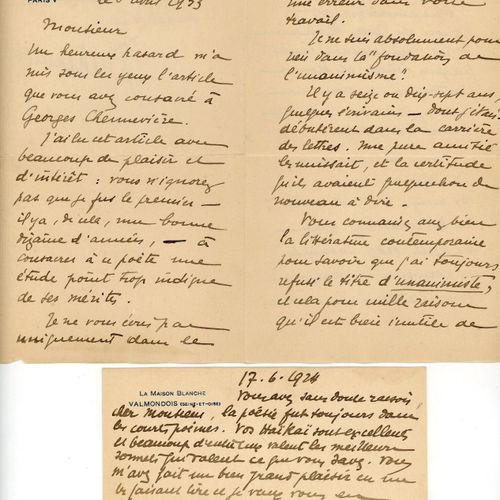 PARIS V
le 6 avril 1923
Monsieur
Un heureux hasard m'a
mis sous les yeux l'article
que vous avez consacré à
Georges Chennevière.
J'ai lu cet article avec
beaucoup de plaisir et
d'intérêt : vous n'ignorez
pas que je fus le premier —
il y a, de cela, une bonne
dizaine d'années, — à
consacrer à ce poète une
étude point trop indigne
de ses mérites.
Je ne vous écris pas
uniquement dans le
une erreur dans votre
travail.
Je ne suis absolument pour
rien dans la "fondation de
l'unanimisme".
Il y a seize ou dix-sept ans,
quelques écrivains — dont j'étais —
débutèrent dans la carrière
des lettres. Une pure amitié
les unissait, et la certitude
qu'ils avaient quelque chose de
nouveau à dire.
Vous connaissez assez bien
la littérature contemporaine
pour savoir que j'ai toujours
refusé le titre d'unanimiste,
et cela pour mille raisons
qu'il est bien inutile de
LA MAISON BLANCHE
VALMONDOIS (SEINE-ET-OISE)
17.6.1924
Vous avez sans doute raison
cher Monsieur, la poésie fut toujours dans
les courts poèmes. Vos Haïkaï sont excellents
et beaucoup d'entre eux valent les meilleurs
sonnets qui valent ce que vous savez. Vous
m'avez fait un bien grand plaisir en me
les faisant lire et je vous en